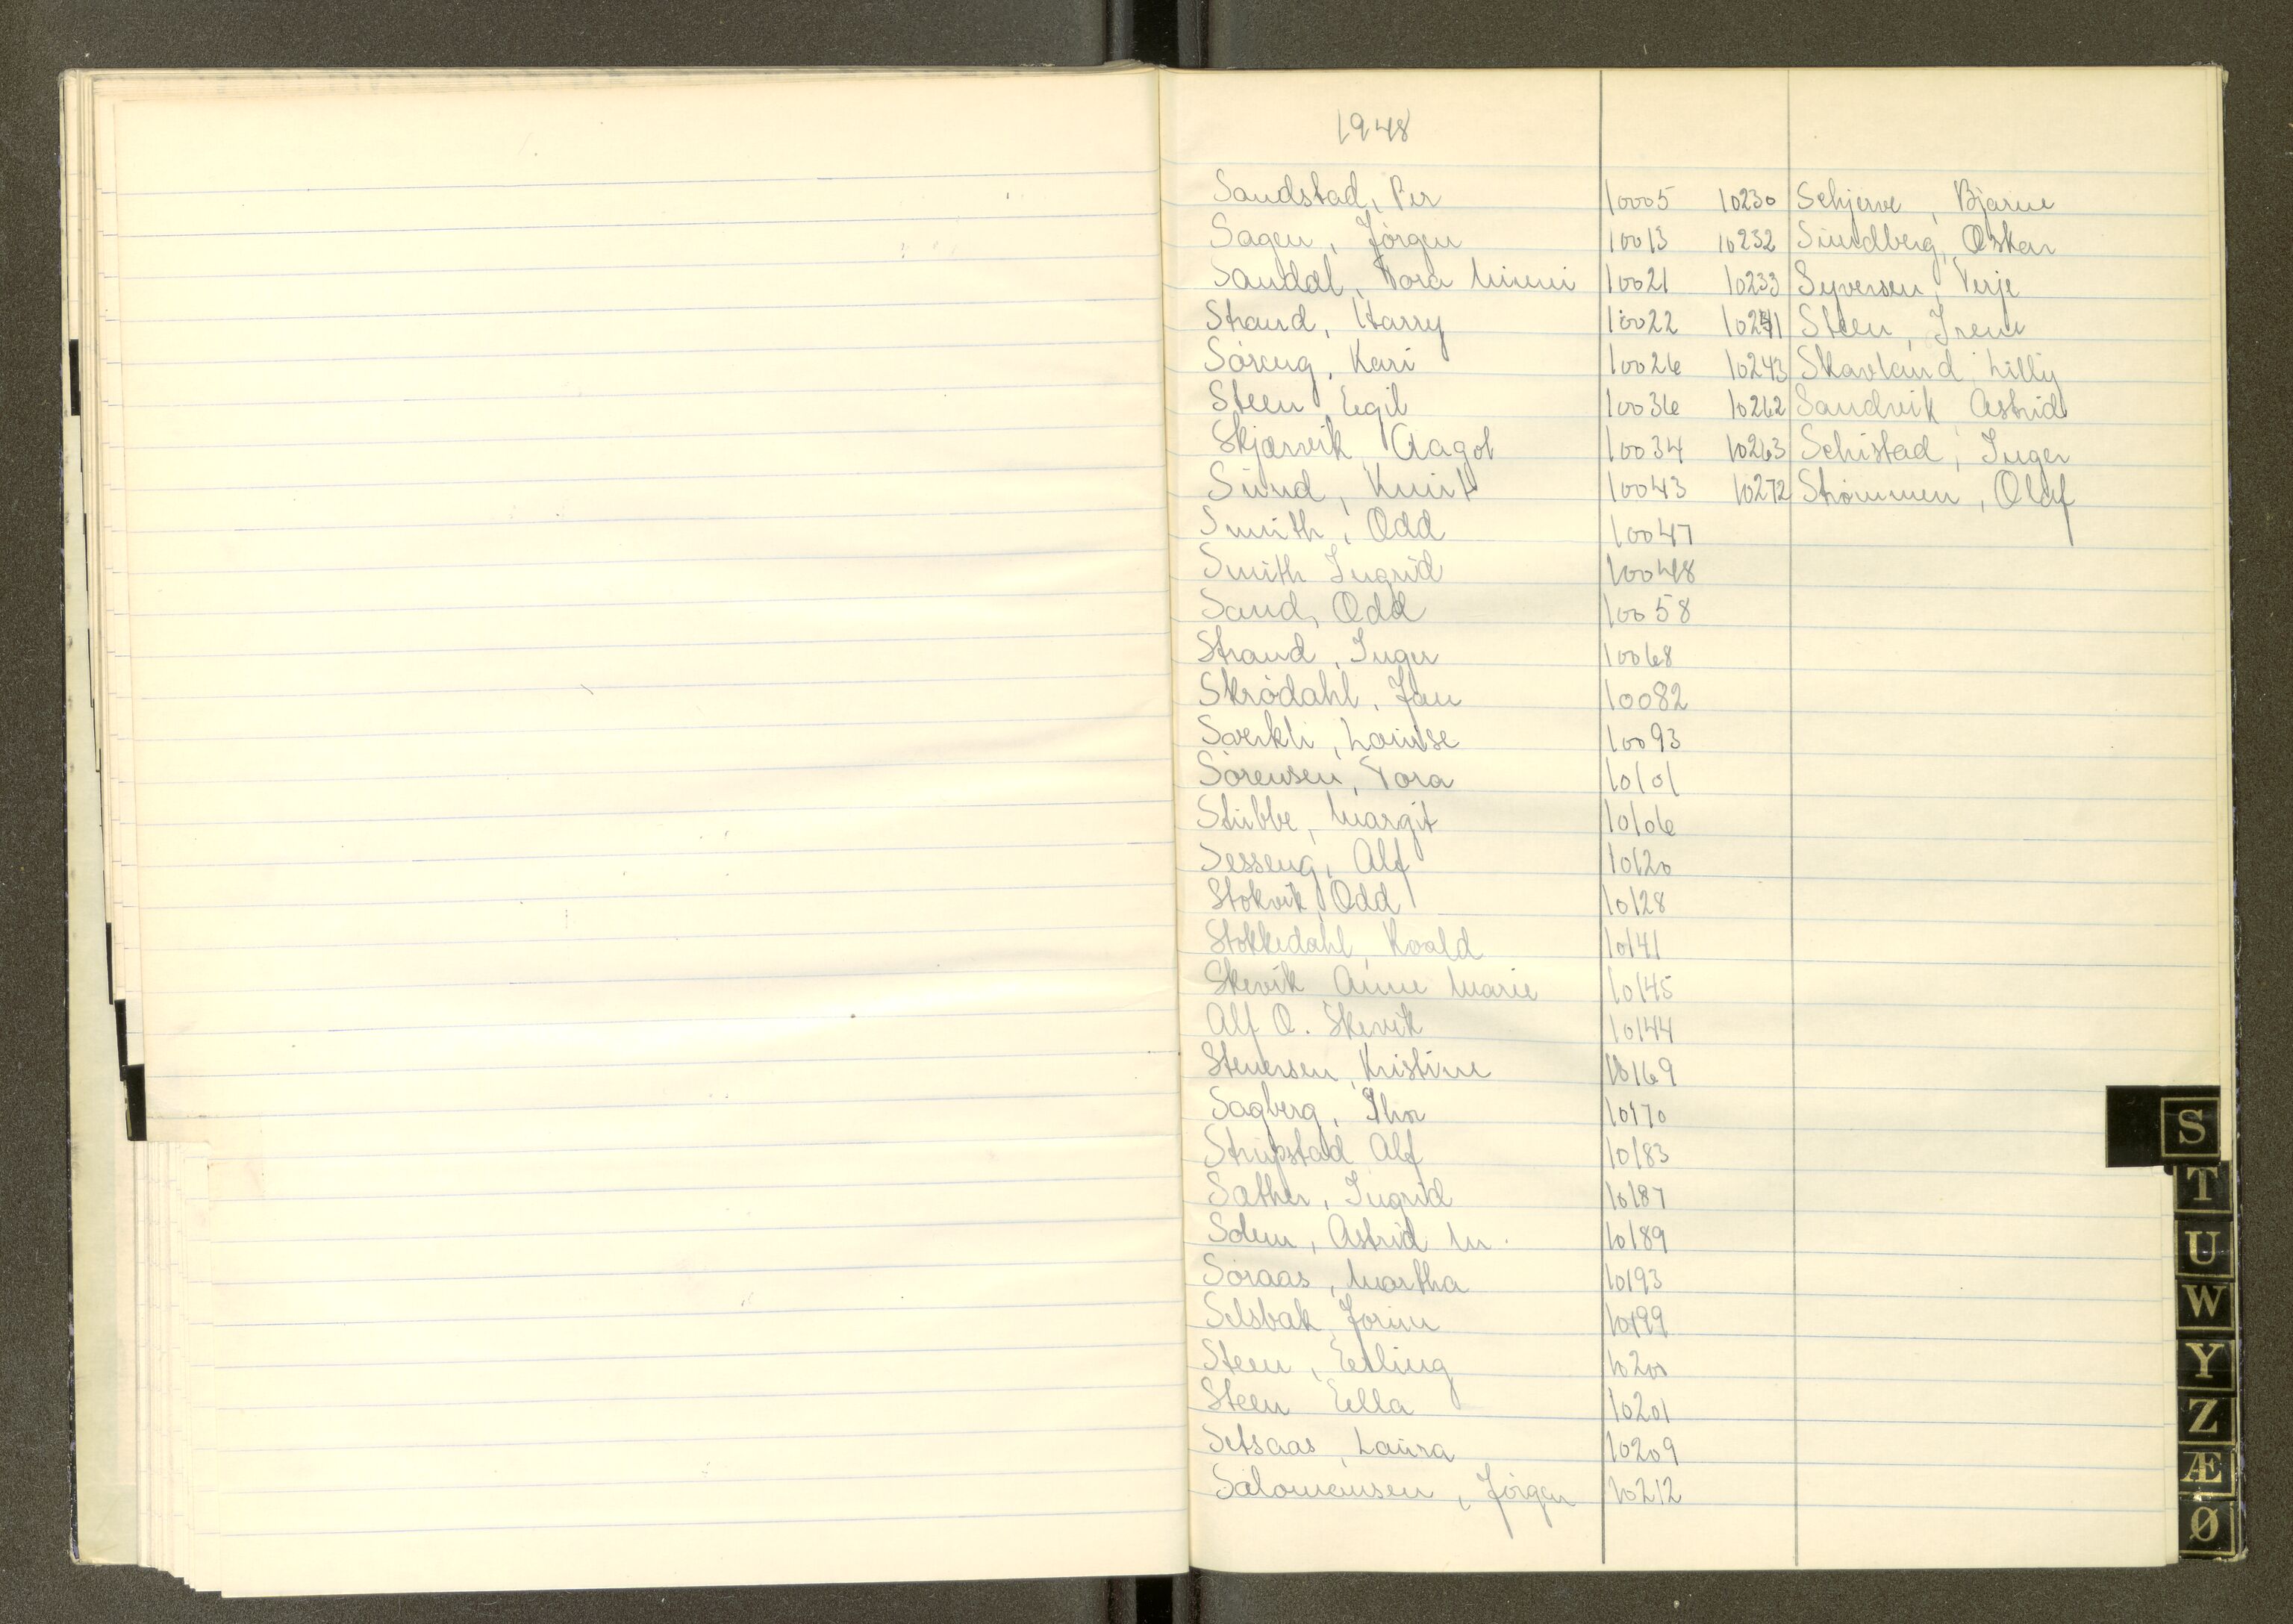 1948
Sandstad, Per 10005 10230 Schjerve, Bjarne
Sagen, Jörgen 10013 10232 Sundberg, Oskar
Sanddal, Tora Mimmi 10021 10233 Syversen, Terje
Strand, Harry 10022 10241 Steen, Irene
Söreng, Kari 10026 10243 Skavland, Lilly
Steen, Egil 10036 10262 Sandvik Astrid
Skjærvik, Aagot 10034 10263 Schistad, Inger
Sund, Knut 10043 10272 Strömmen, Olaf
Smith, Odd 10047
Smith Ingrid 10048
Sand, Odd 10058
Strand, Inger 10068
Skrödahl, Jan 10082
Sverkli, Louise 10093
Sörensen, Tora 10101
Stubbe, Margit 10106
Sesseng, Alf 10120
Stokvik, Odd 10128
Stokkedahl, Roald 10141
Skevik Anne Marie 10145
Alf O. Skevik 10144
Stenersen, Kristine 10169
Sagberg, Thor 10170
Strupstad Alf 10183
Sæther, Ingrid 10187
Solem, Astrid M. 10189
Söraas, Martha 10193
Selsbak, Jorun 10199
Steen, Erling 10200
Steen Ella 10201
Setsaas, Laura 10209
Salomonsen, Jörgen 10212
S
T
U
W
Y
Z
Æ
Ø